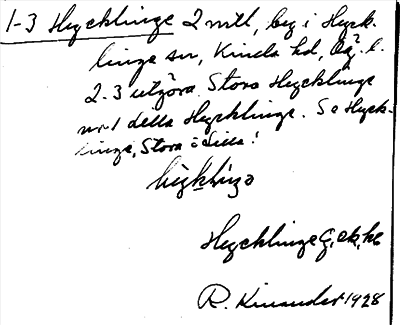 1-3 Hycklinge 2 mtl, by i Hyck-
linge sn, Kinda hd, Ög. l.
2-3 utgöra Stora Hycklinge
nr 1 detta Hycklinge. Se Hyck-
linge, Stora o Lilla!
Hycklinge G, ek, ke
R. Kinander 1928